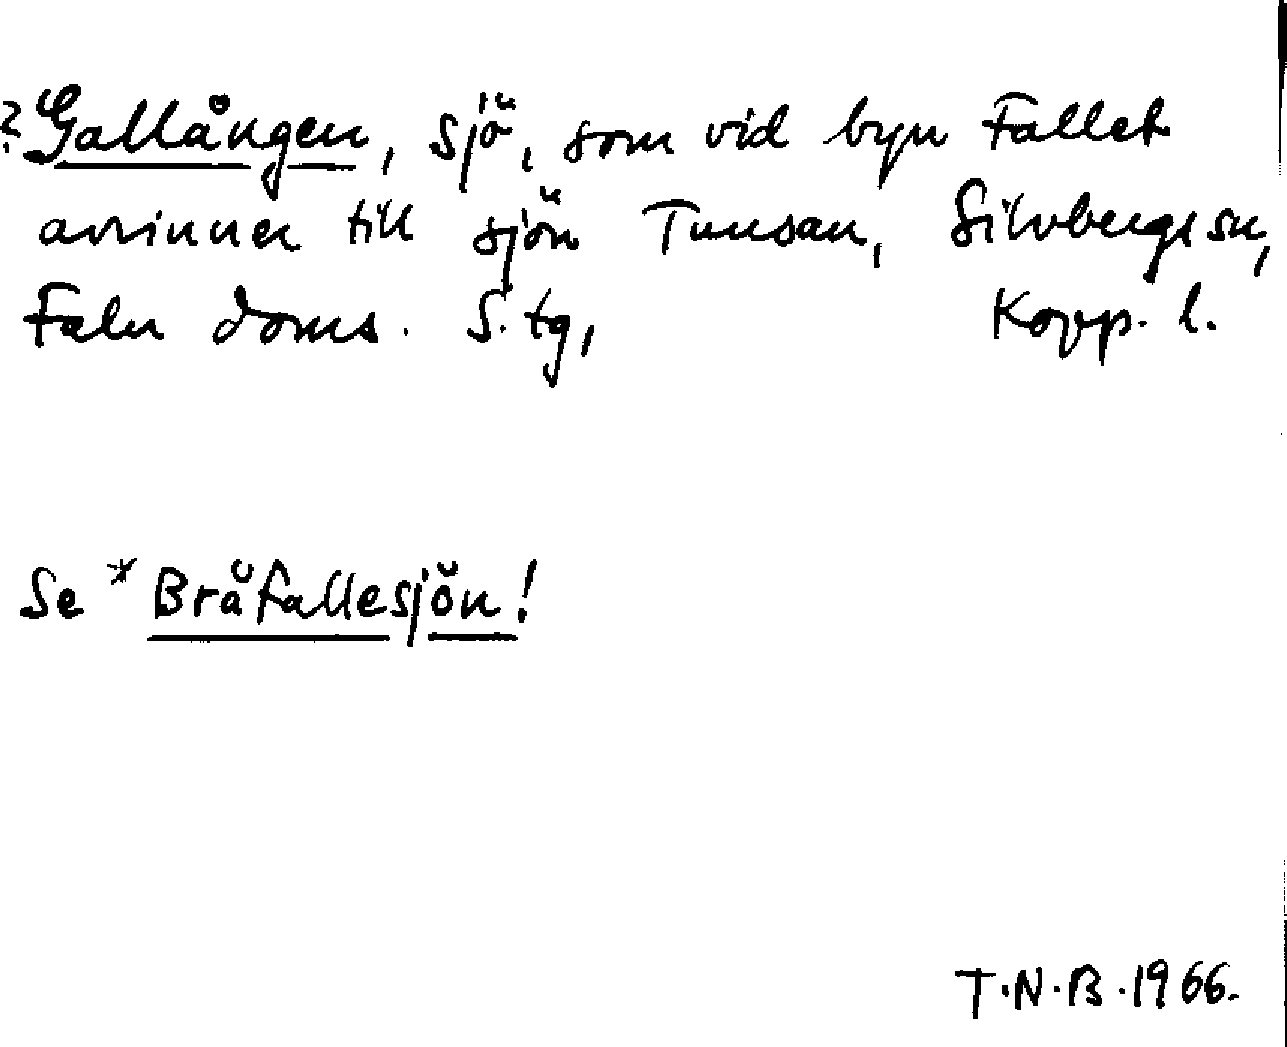 ? Gallången, sjö, som vid byn Fallet
avrinner till sjön Tunsan, Silvbergs sn,
Falu doms. S. tg, Kopp. l.
Se * Bråfallesjön!
T.N.B. 1966.